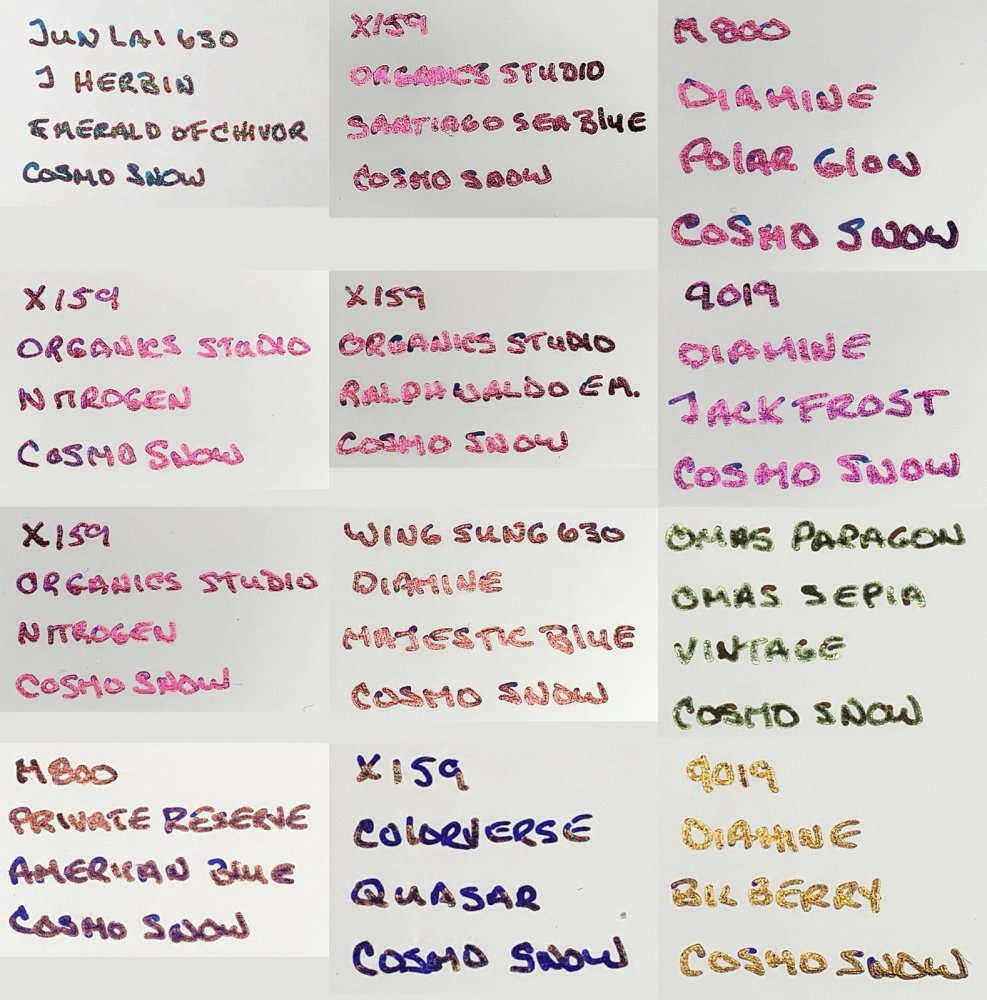 JUNLAI 630
J HERBIN
EMERALD OF CHIVOR
COSMO SNOW
X159
ORGANICS STUDIO
SANTIAGO SEA BlUE
COSMO SNOW
M800
DIAMINE
POlAR GlOW
COSMO SNOW
X159
ORGANICS STUDIO
NITROGEN
COSMO SNOW
X159
ORGANICS STUDIO
RALPH WALDO EM.
COSMO SNOW
9019
DIAMINE
JACK FROST
COSMO SNOW
X159
ORGANICS STUDIO
NITROGEN
COSMO SNOW
WING SUNG 630
DIAMINE
MAJESTIC BlUE
COSMO SNOW
OMAS PARAGON
OMAS SEPIA
VINTAGE
COSMO SNOW
M800
PRIVATE RESERVE
AMERICAN BlUE
COSMO SNOW
X159
COlORVERSE
QUASAR
COSMO SNOW
9019
DIAMINE
BILBERRY
COSMO SNOW